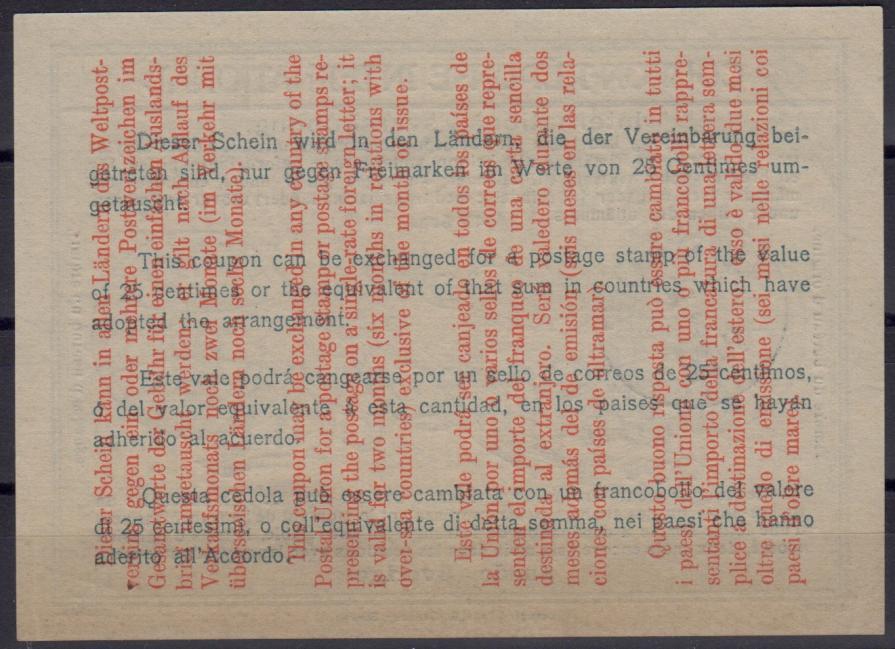 Dieser Schein wird in den Ländern, die der Vereinbarung bei-
getreten sind, nur gegen Freimarken im Werte von 25 Centimes um-
getauscht.
This coupon can be exchanged for a postage stamp of the value
of 25 centimes or the equivalent of that sum in countries which have
adopted the arrangement.
Este vale podrá cangearse por un sello de correos de 25 centimos,
ó del valor equivalente á esta cantidad, en los paises que se hayan
adherido al acuerdo.
Questa cedola può essere cambiata con un francobollo del valore
di 25 centesimi, o coll'equivalente di detta somma, nei paesi che hanno
aderito all'Accordo.
Dieser Schein kann in allen Ländern des Weltpost-
vereins gegen ein oder mehrere Postwertzeichen im
Gesamtwerte der Gebühr für einen einfachen Auslands-
brief umgetauscht werden. Er gilt nach Ablauf des
Verkaufsmonats noch zwei Monate (im Verkehr mit
überseeischen Ländern noch sechs Monate).
This coupon may be exchanged in any country of the
Postal Union for a postage stamp or postage stamps re-
presenting the postage on a single rate foreign letter; it
is valid for two months (six months in relations with
over-sea countries) exclusive of the month of issue.
Este vale podrá ser canjeado en todos los países de
la Unión por uno ó varios sellos de correos que repre-
senten el importe del franqueo de una carta sencilla
destinada al extranjero. Será valedero durante dos
meses además del de emisión (seis meses en las rela-
ciones con países de ultramar).
Questo buono risposta può essere cambiato in tutti
i paesi dell'Unione con uno o più francobolli rappre-
sentanti l'importo della francatura di una lettera sem-
plice a destinazione dell'estero. Esso è valido due mesi
oltre quello di emissione (sei mesi nelle relazioni coi
paesi d'oltre mare).